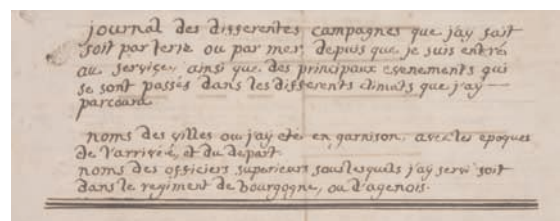 journal des differentes campagnes que j'ay fait
soit par terre ou par mer, depuis que je suis entré
au service, ainsi que des principaux evenements qui
se sont passés dans les differents climats que j'ay
parcouru
noms des villes ou j'ay eté en garnison, avec les epoques
de l'arriveé, et du depart.
noms des officiers superieurs sous lesquels j'ay servi soit
dans le regiment de bourgogne, ou d'agenois.